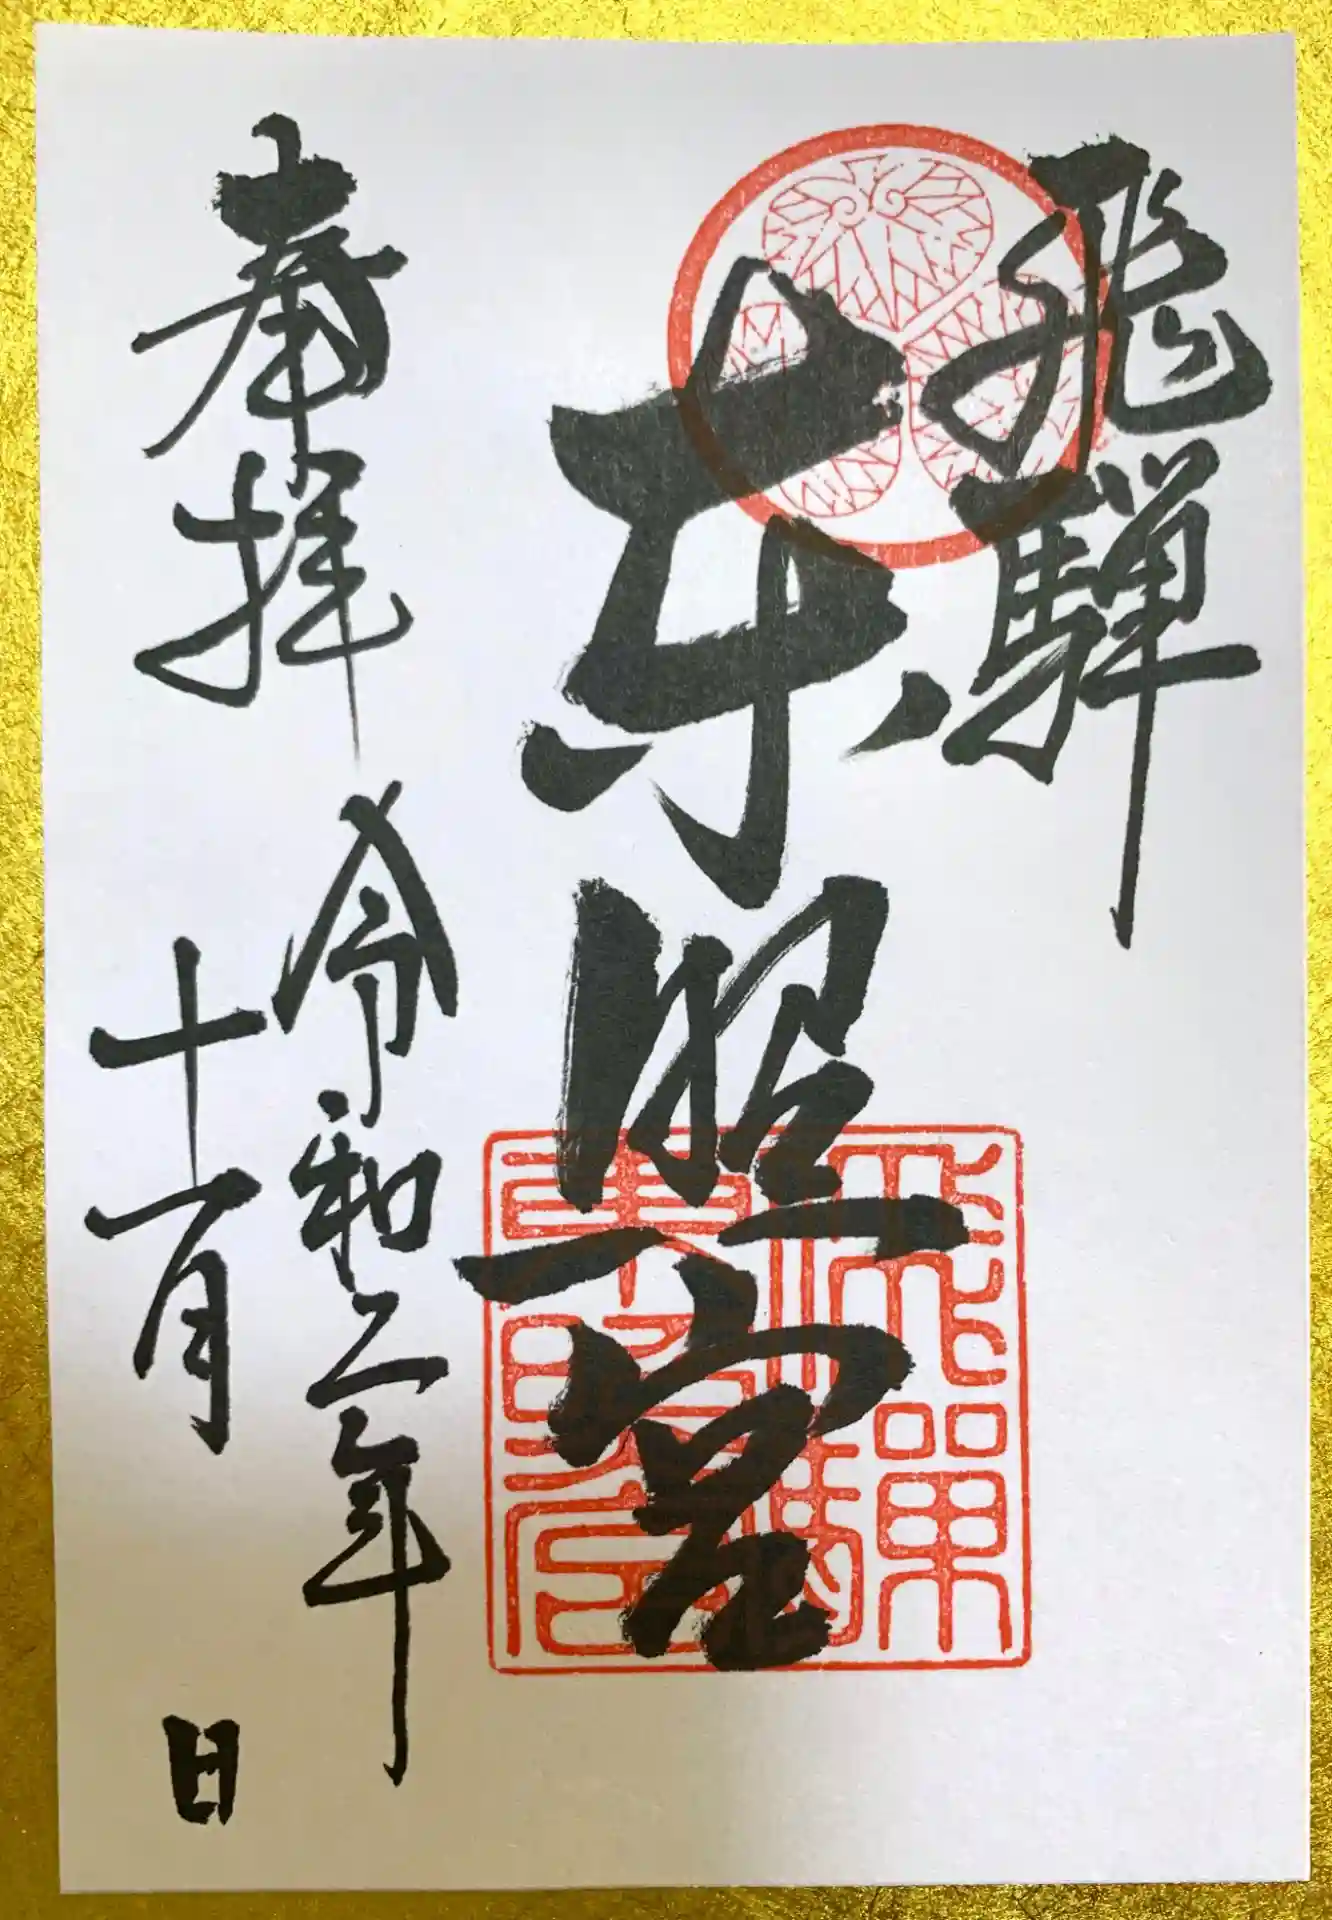 飛騨
東照宮
飛騨
東照宮
奉拝
令和二年
十一月
日